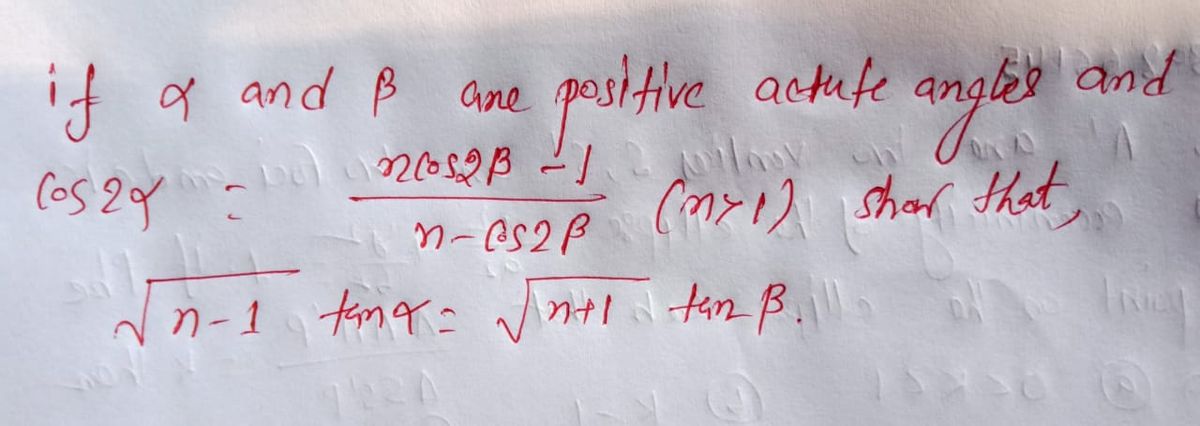 if α and β are positive actute angles and
cos2α = (ncos2β - 1)/(n - cos2β) (n>1) show that,
√(n-1) tanα = √(n+1) tan β.